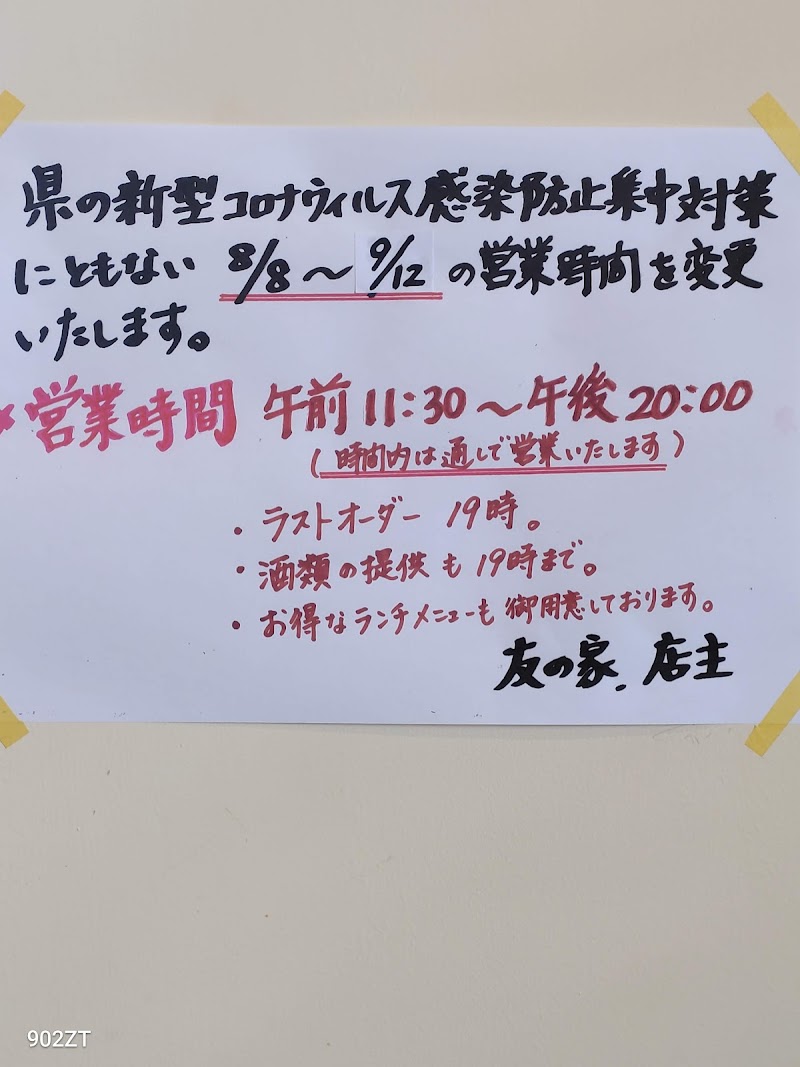 県の新型コロナウィルス感染防止集中対策
にともない 8/8～9/12の営業時間を変更
いたします。
※営業時間 午前11:30～午後20:00
(時間内は通しで営業いたします)
・ラストオーダー 19時。
・酒類の提供も19時まで。
・お得なランチメニューも御用意しております。
友の家. 店主
902ZT